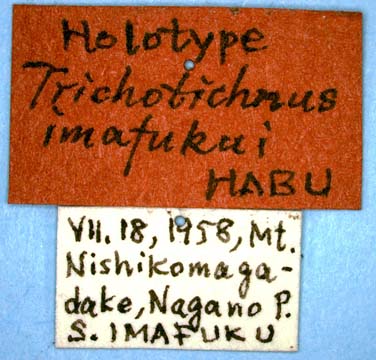 Holotype
Trichotichnus
imafukui
HABU
VII. 18, 1958, Mt.
Nishikomaga-
dake, Nagano P.
S. IMAFUKU